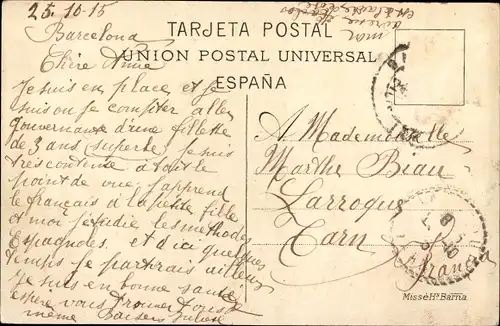 25-10-15
TARJETA POSTAL
UNION POSTAL UNIVERSAL
ESPAÑA
Barcelona
Chère Amie
Je suis en place et je
suis ou je compter aller
Gouvernante d'une fillette
de 3 ans (superbe) Je suis
très contente à tout le
point de vue j'apprend
le français à la petite fille
et moi j'étudie les méthodes
Espagnoles et d'ici quelques
temps je partirais ailleurs
Je suis en bonne santé
espère vous trouver tous
même Baisers
A Mademoiselle
Marthe Biau
Larroque
Tarn
France
Missé Hs. Barna